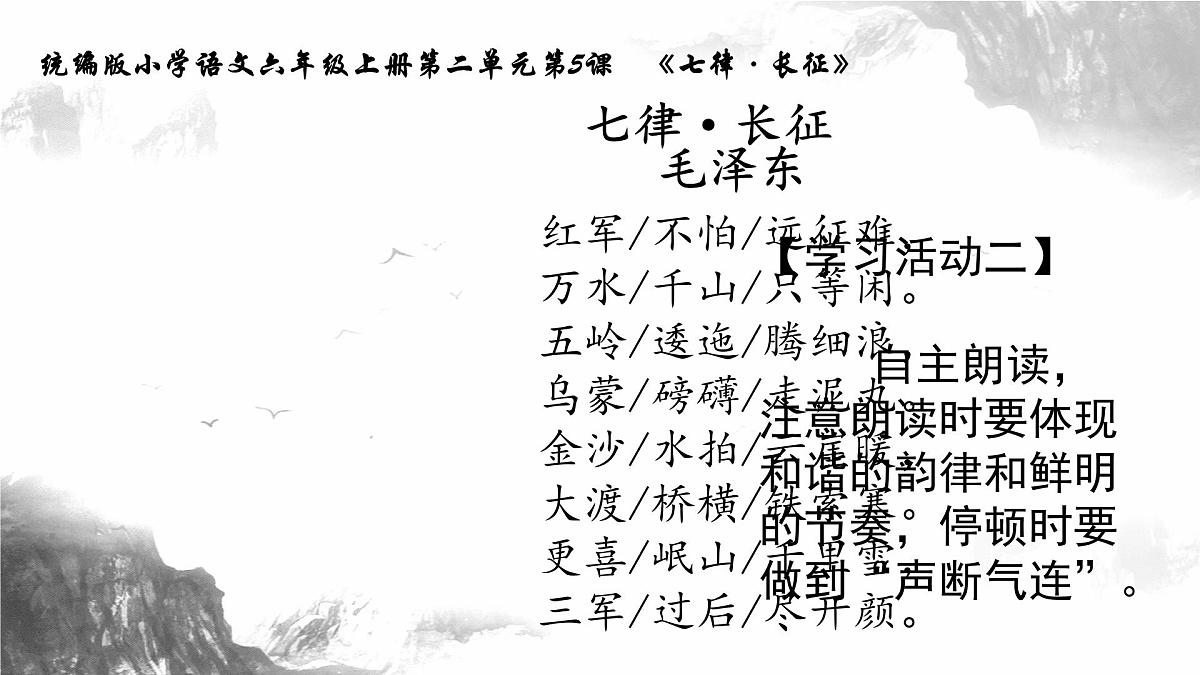 统编版小学语文六年级上册第二单元第5课 《七律·长征》
七律·长征
毛泽东
红军/不怕/远征难
万水/千山/只等闲。
五岭/逶迤/腾细浪
乌蒙/磅礴/走泥丸
金沙/水拍/云崖暖
大渡/桥横/铁索寒。
更喜/岷山/千里雪
三军/过后/尽开颜。
【学习活动二】
自主朗读，
注意朗读时要体现
和谐的韵律和鲜明
的节奏，停顿时要
做到“声断气连”。